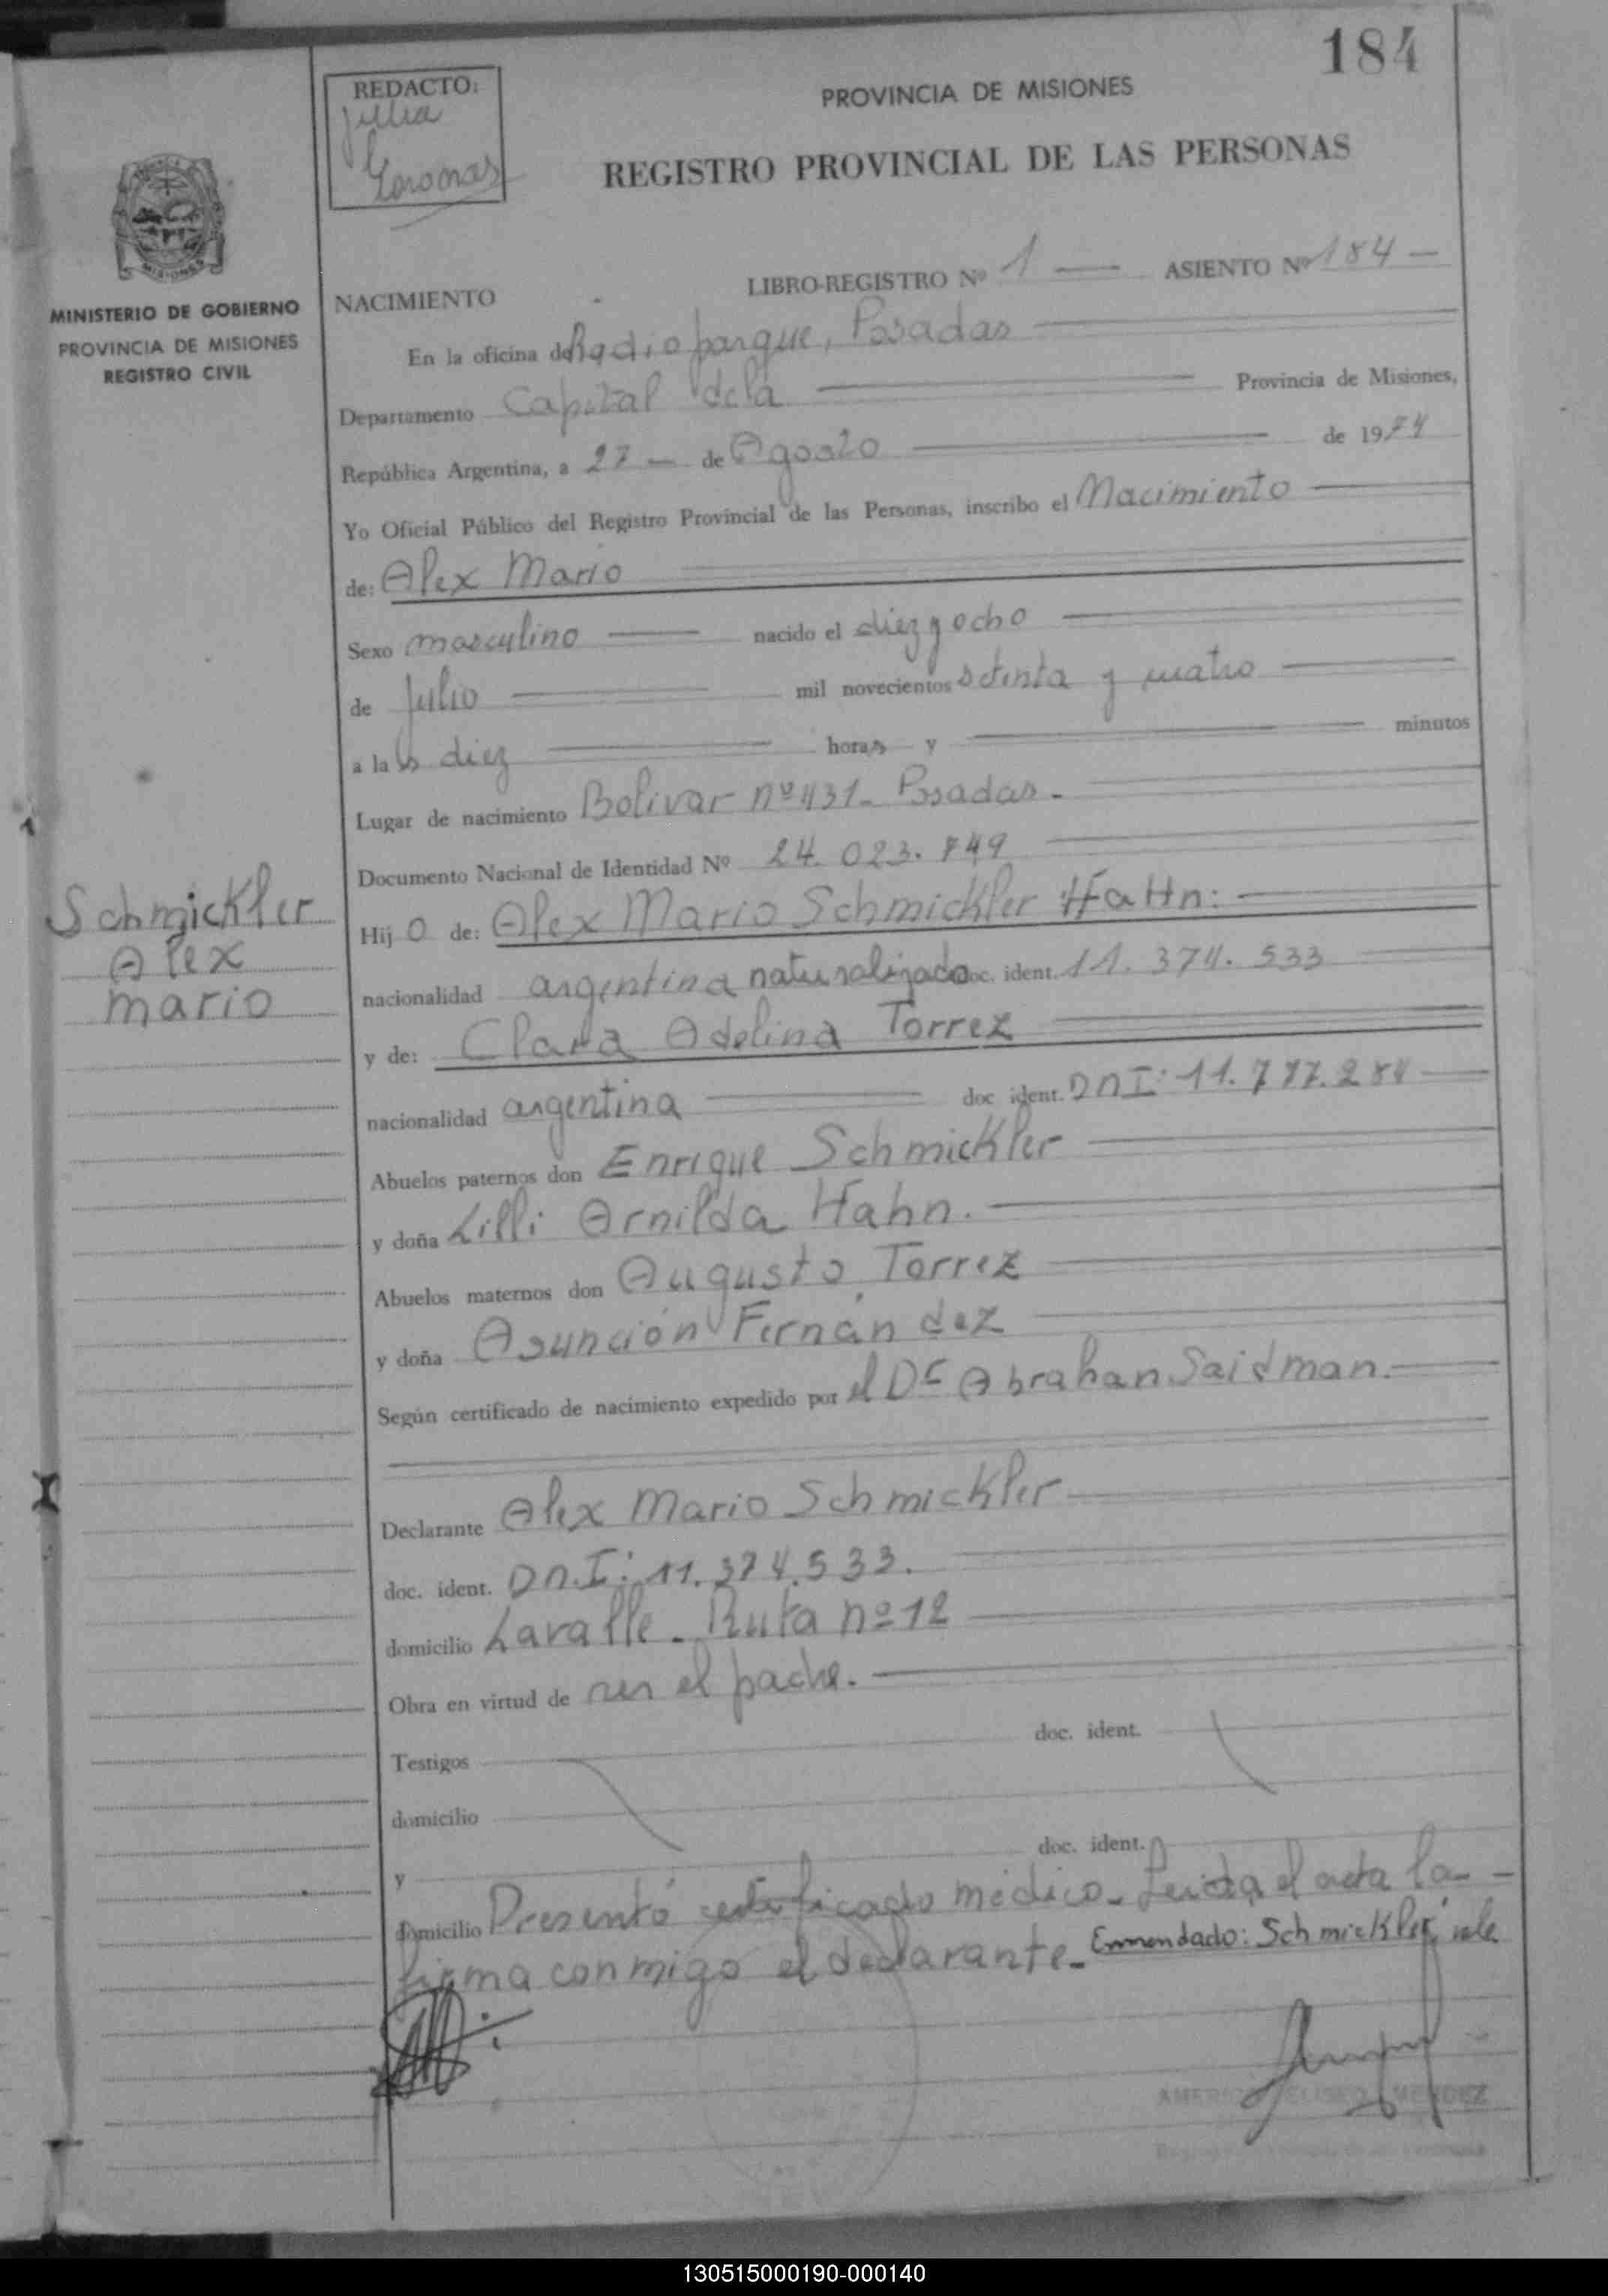 184
REDACTO:
Julia
PROVINCIA DE MISIONES
REGISTRO PROVINCIAL DE LAS PERSONAS
MISIONES
MINISTERIO DE GOBIERNO
PROVINCIA DE MISIONES
REGISTRO CIVIL
NACIMIENTO LIBRO-REGISTRO Nº 1 — ASIENTO Nº 184 —
En la oficina de Radio parque, Posadas
Departamento Capital dela Provincia de Misiones,
República Argentina, a 27 — de Agosto de 1974
Yo Oficial Público del Registro Provincial de las Personas, inscribo el Nacimiento
de: Alex Mario
Sexo masculino nacido el diez y ocho
de Julio mil novecientos setenta y cuatro
a las diez horas y minutos
Lugar de nacimiento Bolivar nº 431 - Posadas -
Documento Nacional de Identidad Nº 24. 023. 749
Schmickler
Alex
mario
Hij o de: Alex Mario Schmickler HaHn:
nacionalidad argentina naturalizado doc. ident. 11. 374. 533
y de: Clara Adelina Torrez
nacionalidad argentina doc ident. DNI: 11. 777. 284
Abuelos paternos don Enrique Schmickler
y doña Lilli Arnilda Hahn.
Abuelos maternos don Augusto Torrez
y doña Asunción Fernandez
Según certificado de nacimiento expedido por el Dr Abrahan Saidman.
Declarante Alex Mario Schmickler
doc. ident. Dn.I: 11. 374. 533.
domicilio Lavalle - Ruta nº 12
Obra en virtud de ser el padre.
Testigos doc. ident.
domicilio
y doc. ident.
domicilio Presentó certificado médico - Leida el acta la -
firma conmigo el declarante - Enmendado: Schmickler, vale
AMERICO ELISEO MENDEZ
130515000190-000140